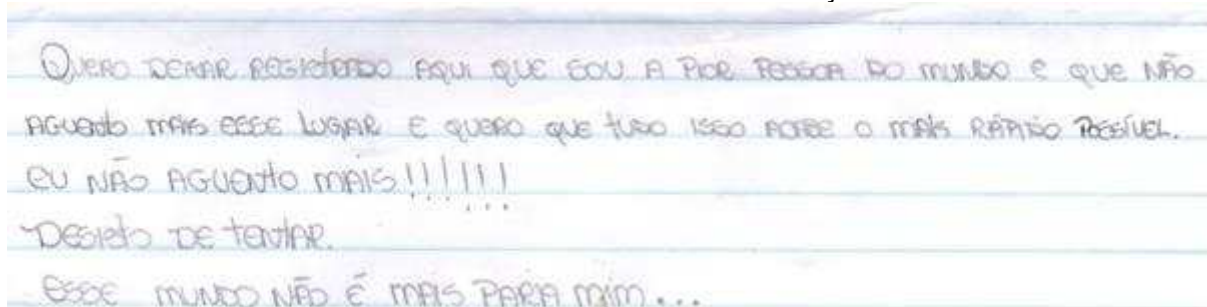 QUERO DEIXAR REGISTRADO AQUI QUE SOU A PIOR PESSOA DO MUNDO E QUE NÃO
AGUENTO MAIS ESSE LUGAR E QUERO QUE TUDO ISSO ACABE O MAIS RÁPIDO POSSÍVEL.
EU NÃO AGUENTO MAIS!!!!!!
DESISTO DE TENTAR.
ESSE MUNDO NÃO É MAIS PARA MIM...